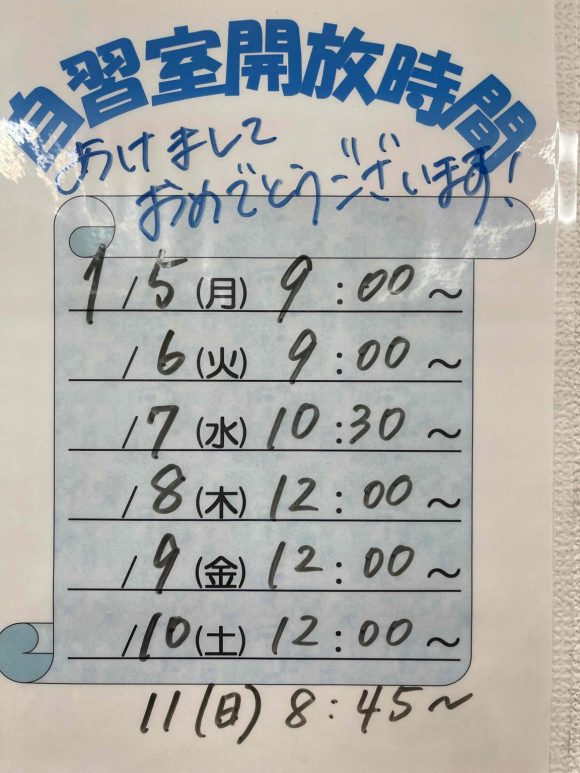 自習室開放時間
あけまして
おめでとうございます!
1/5(月) 9:00~
/6(火) 9:00~
/7(水) 10:30~
/8(木) 12:00~
/9(金) 12:00~
/10(土) 12:00~
11(日) 8:45~